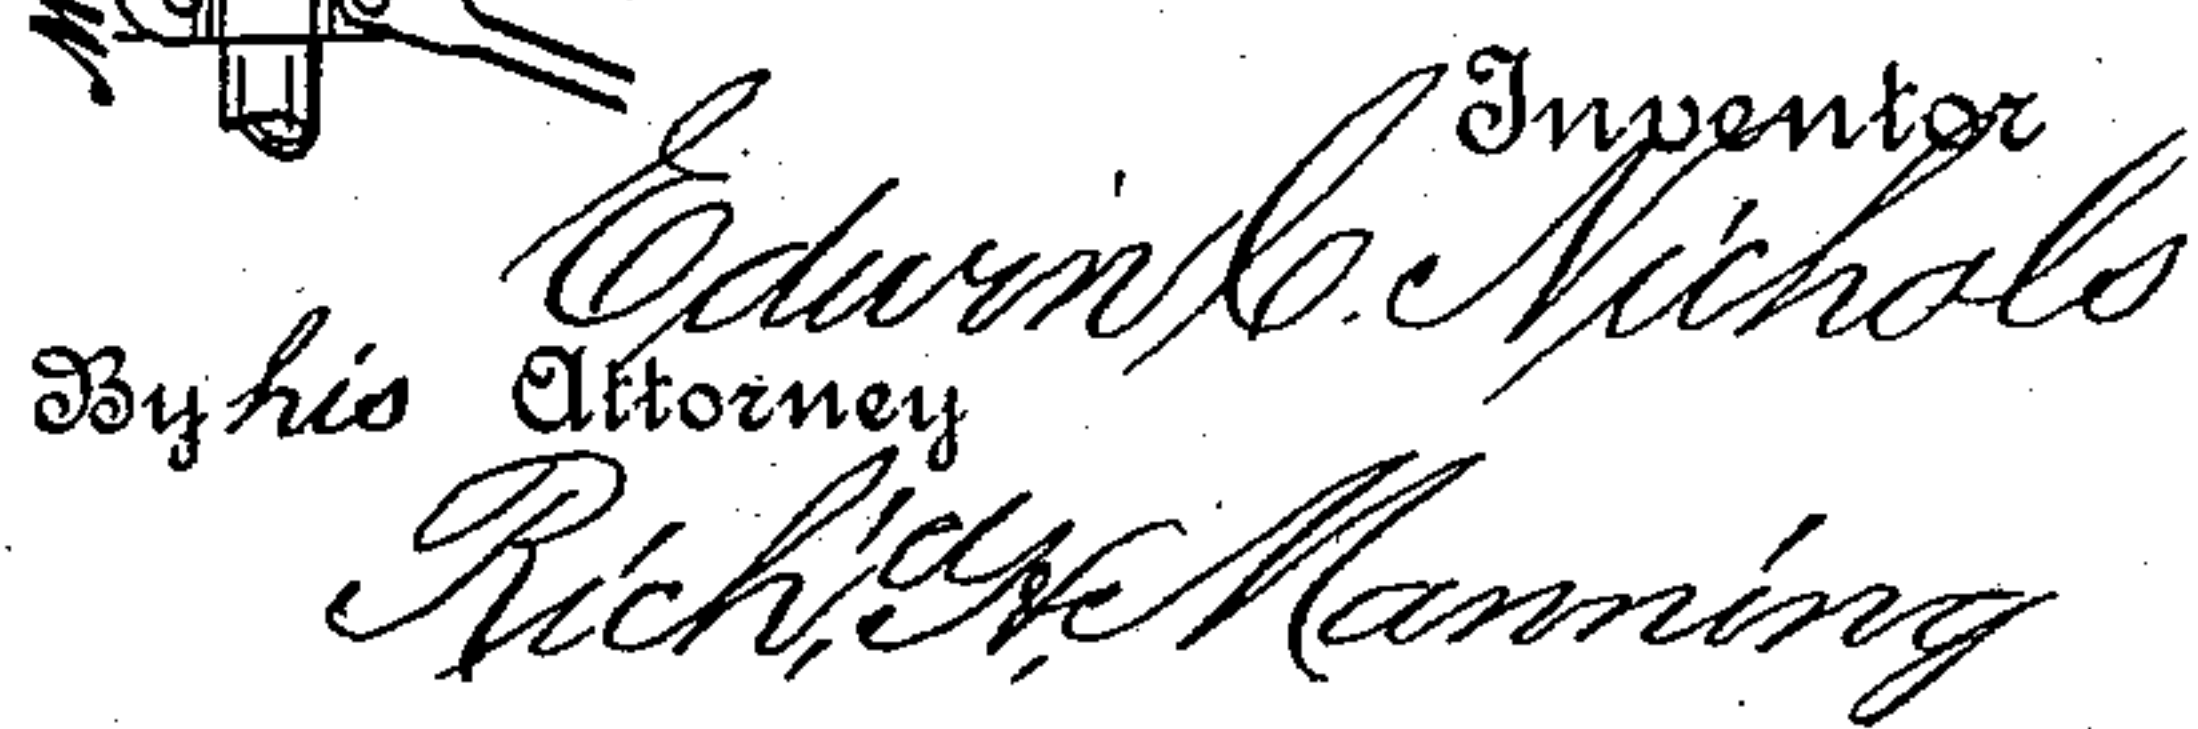 Inventor
Edwin C. Nichols
By his Attorney
Rich'd. H. Manning